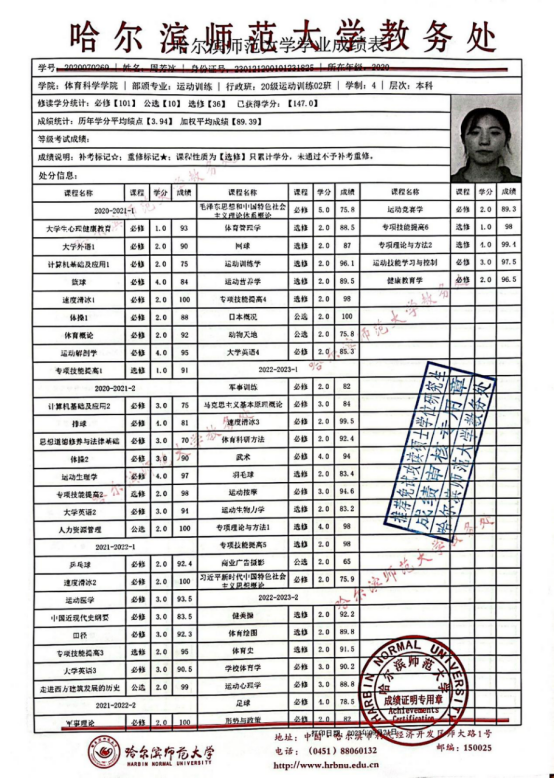 哈尔滨师范大学教务处
哈尔滨师范大学学业成绩表
学院：体育科学学院 | 部颁专业：运动训练 | 行政班：20级运动训练02班 | 学制：4 | 层次：本科
修读学分统计：必修【101】 公选【10】 选修【36】 已获得学分：【147.0】
成绩统计：历年学分平均绩点【3.94】 加权平均成绩【89.39】
等级考试成绩：
成绩说明：补考标记☆；重修标记★；课程性质为【选修】只累计学分，未通过不予补考重修。
处分信息：
课程名称 课程 学分 成绩 课程名称 课程 学分 成绩 课程名称 课程 学分 成绩
2020-2021-1
大学生心理健康教育 必修 1.0 93
大学外语1 必修 2.0 90
计算机基础及应用1 必修 2.0 75
篮球 必修 4.0 84
速度滑冰1 必修 2.0 100
体操1 必修 2.0 88
体育概论 必修 2.0 92
运动解剖学 必修 4.0 95
专项技能提高1 选修 1.0 91
2020-2021-2
计算机基础及应用2 必修 3.0 75
排球 必修 4.0 81
思想道德修养与法律基础 必修 3.0 70
体操2 必修 3.0 90
运动生理学 必修 4.0 97
专项技能提高2 选修 2.0 98
大学英语2 必修 3.0 91
人力资源管理 公选 2.0 100
2021-2022-1
乒乓球 必修 2.0 92.4
速度滑冰2 必修 2.0 100
运动医学 必修 3.0 93.5
中国近现代史纲要 必修 3.0 83.5
田径 必修 3.0 92.3
专项技能提高3 选修 2.0 95
大学英语3 必修 3.0 90.5
走进西方建筑发展的历史 公选 2.0 99
2021-2022-2
军事理论 必修 2.0 100
毛泽东思想和中国特色社会主义理论体系概论 必修 5.0 75.8
体育管理学 选修 2.0 88.5
网球 选修 2.0 87
运动训练学 必修 2.0 96.1
运动营养学 选修 2.0 89.5
专项技能提高4 选修 2.0 98
日本概况 公选 2.0 100
动物天地 公选 2.0 75.8
大学英语4 必修 2.0 85.3
2022-2023-1
军事训练 必修 2.0 82
马克思主义基本原理概论 必修 3.0 84
速度滑冰3 必修 2.0 99.5
体育科研方法 必修 2.0 92.4
武术 必修 4.0 94
羽毛球 选修 2.0 83.4
运动按摩 选修 3.0 94.6
运动生物力学 选修 2.0 83.2
专项理论与方法1 必修 4.0 98
专项技能提高5 选修 2.0 98
商业广告摄影 公选 2.0 65
习近平新时代中国特色社会主义思想概论 必修 2.0 75.9
2022-2023-2
健美操 选修 2.0 92.2
体育绘图 选修 2.0 89.8
体育史 选修 2.0 91.5
学校体育学 必修 3.0 90.2
运动心理学 必修 3.0 88.8
足球 必修 4.0 78.5
形势与政策 必修 2.0 82
运动竞赛学 必修 2.0 89.3
专项技能提高6 选修 1.0 98
专项理论与方法2 必修 4.0 99.4
运动技能学习与控制 必修 3.0 97.5
健康教育学 必修 2.0 96.5
推荐免试攻读硕士学位研究生
成绩审核专用章
哈尔滨师范大学教务处
HARBIN NORMAL UNIVERSITY
哈尔滨师范大学
成绩证明专用章
Achievements
Certification
哈尔滨师范大学
HARBIN NORMAL UNIVERSITY
地址：中国·哈尔滨市利民经济开发区师大路1号
电话：（0451）88060132 邮编：150025
http://www.hrbnu.edu.cn